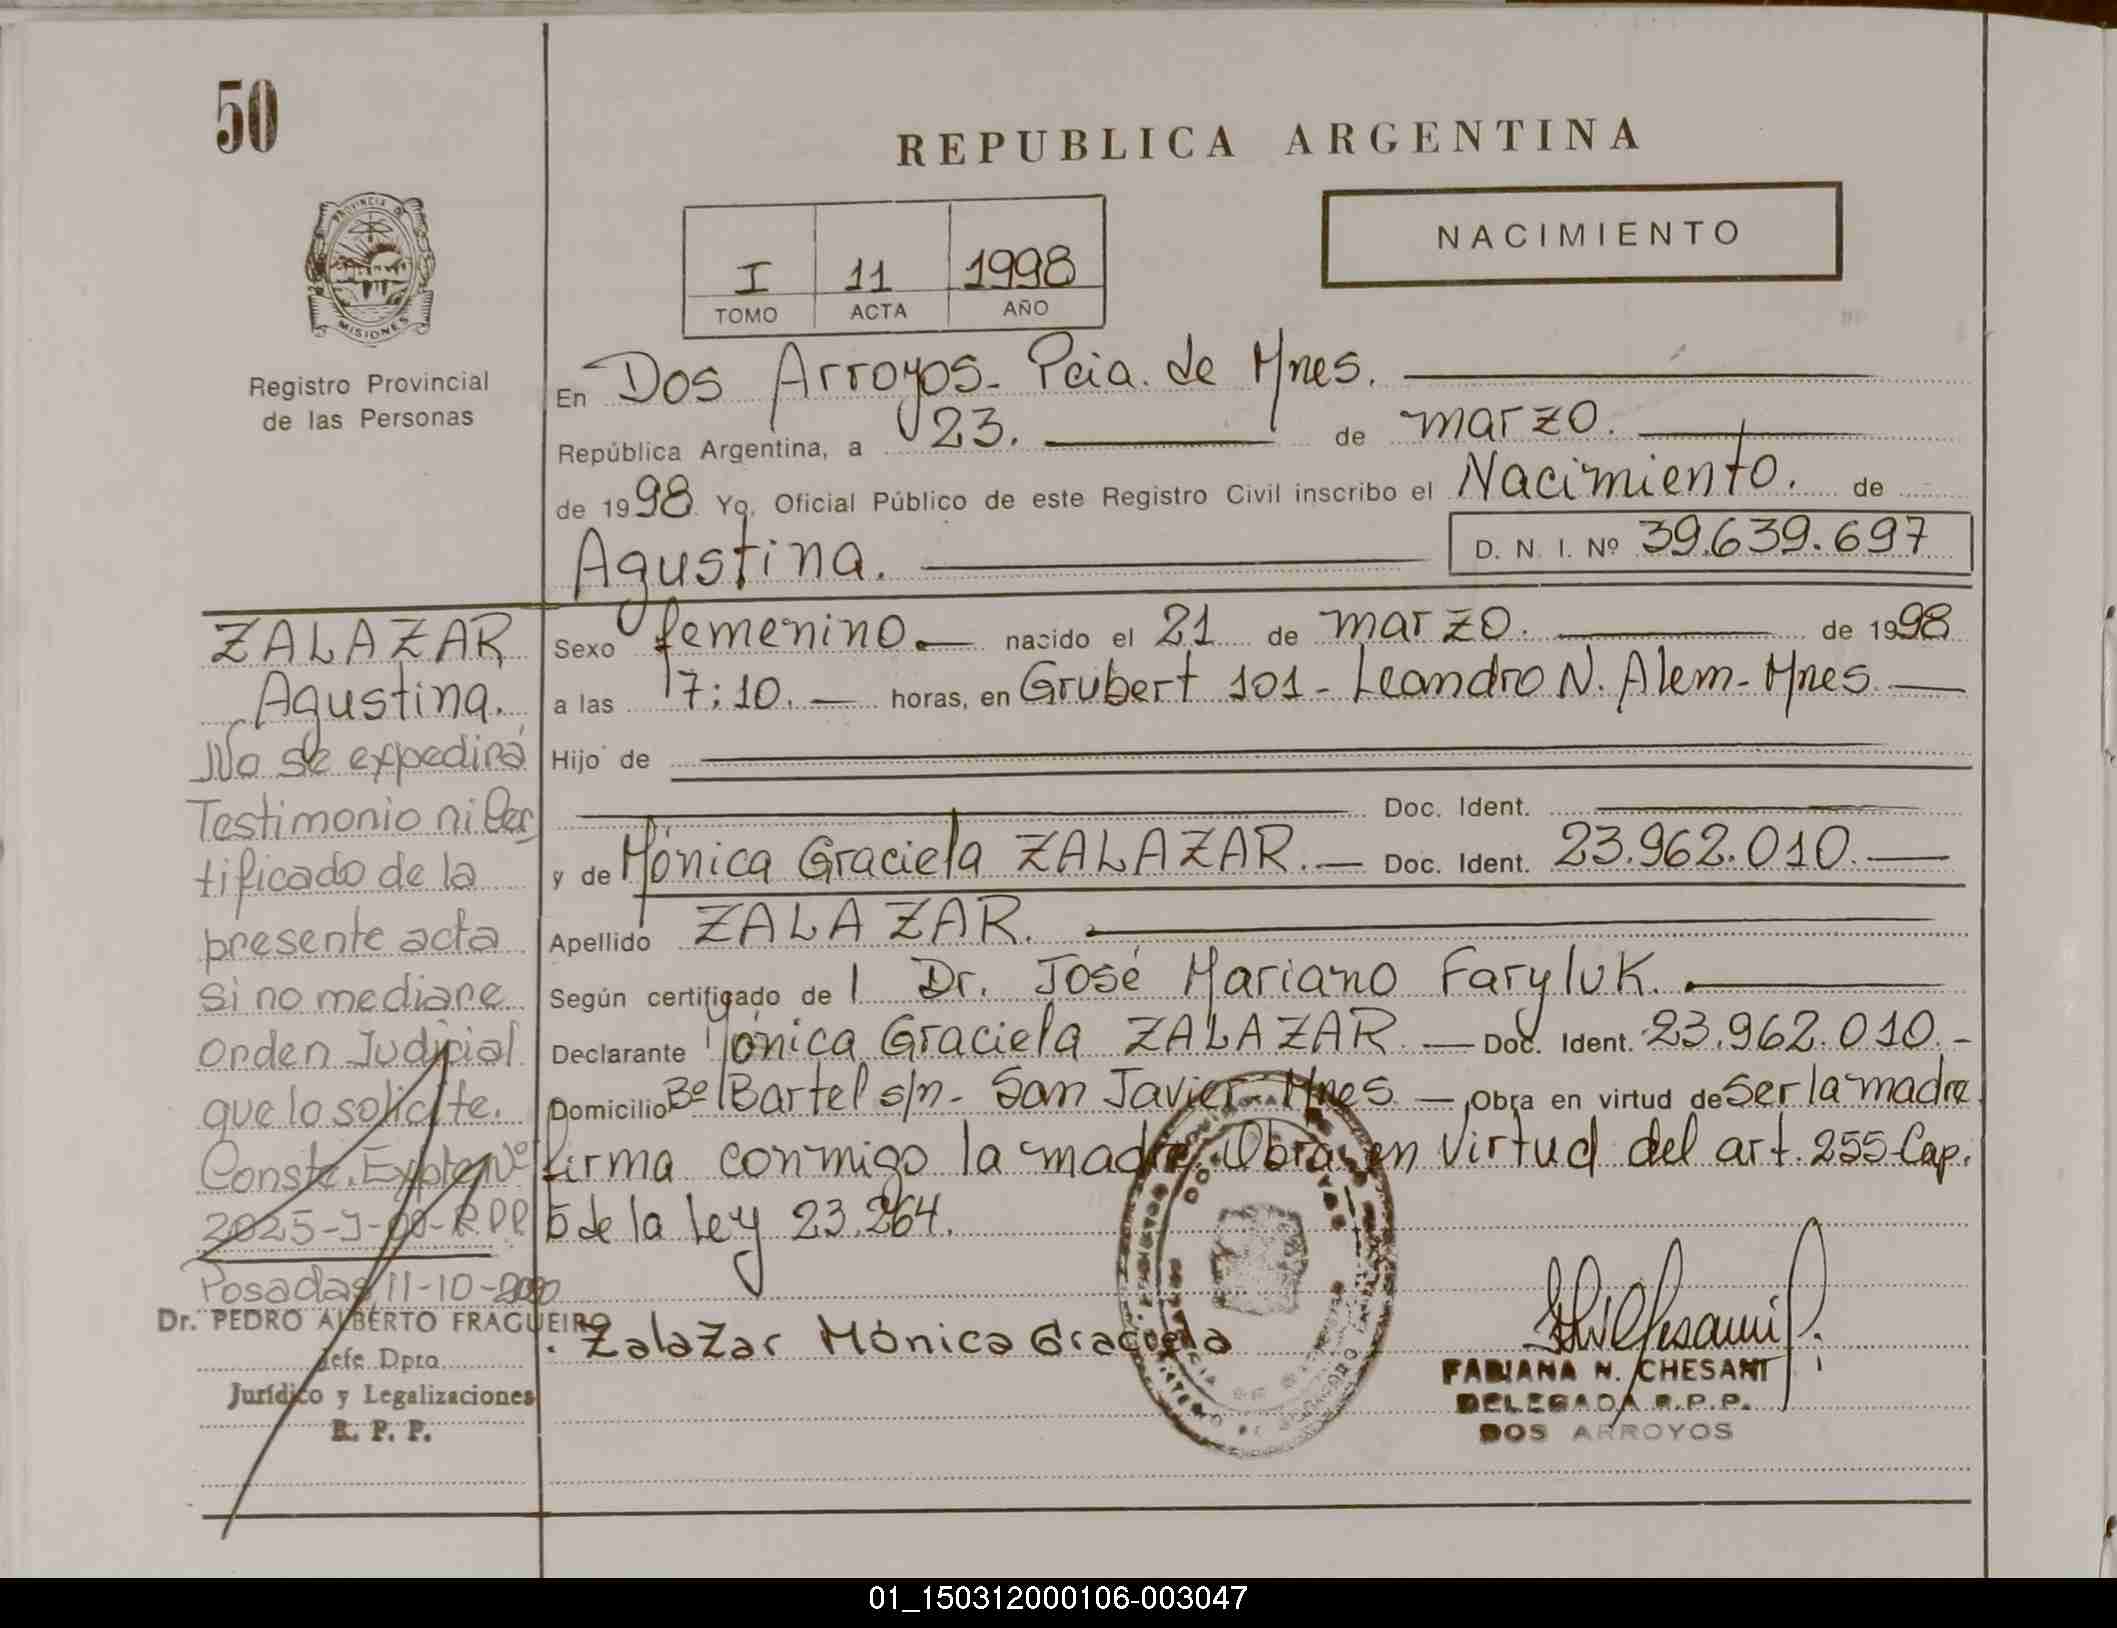 50
REPUBLICA ARGENTINA
NACIMIENTO
I 11 1998
TOMO ACTA AÑO
PROVINCIA DE
MISIONES
Registro Provincial
de las Personas
En Dos Arroyos - Pcia. de Mnes.
República Argentina, a 23. de marzo.
de 1998. Yo, Oficial Público de este Registro Civil inscribo el Nacimiento. de
Agustina. D. N. I. Nº 39.639.697
Sexo femenino. nacido el 21 de marzo. de 1998
a las 17:10. horas, en Grubert 101 - Leandro N. Alem - Mnes.
Hijo de
Doc. Ident.
y de Mónica Graciela ZALAZAR. Doc. Ident. 23.962.010.
Apellido ZALAZAR.
Según certificado de l Dr. José Mariano Faryluk.
Declarante Mónica Graciela ZALAZAR. Doc. Ident. 23.962.010.-
Domicilio Bº Bartel s/n - San Javier - Mnes. Obra en virtud de ser la madre
firma conmigo la madre. Obra en virtud del art. 255-Cap.
5 de la Ley 23.264.
Zalazar Mónica Graciela
FABIANA N. CHESANI
DELEGADA R.P.P.
DOS ARROYOS
ZALAZAR
Agustina.
No se expedirá
Testimonio ni Cer
tificado de la
presente acta
si no mediare
Orden Judicial
que lo solicite.
Conste. Expte Nº
2025-J-00-R.P.P.
Posadas, 11-10-2000
Dr. PEDRO ALBERTO FRAGUEIRO
Jefe Dpto.
Jurídico y Legalizaciones
R. P. P.
01_150312000106-003047